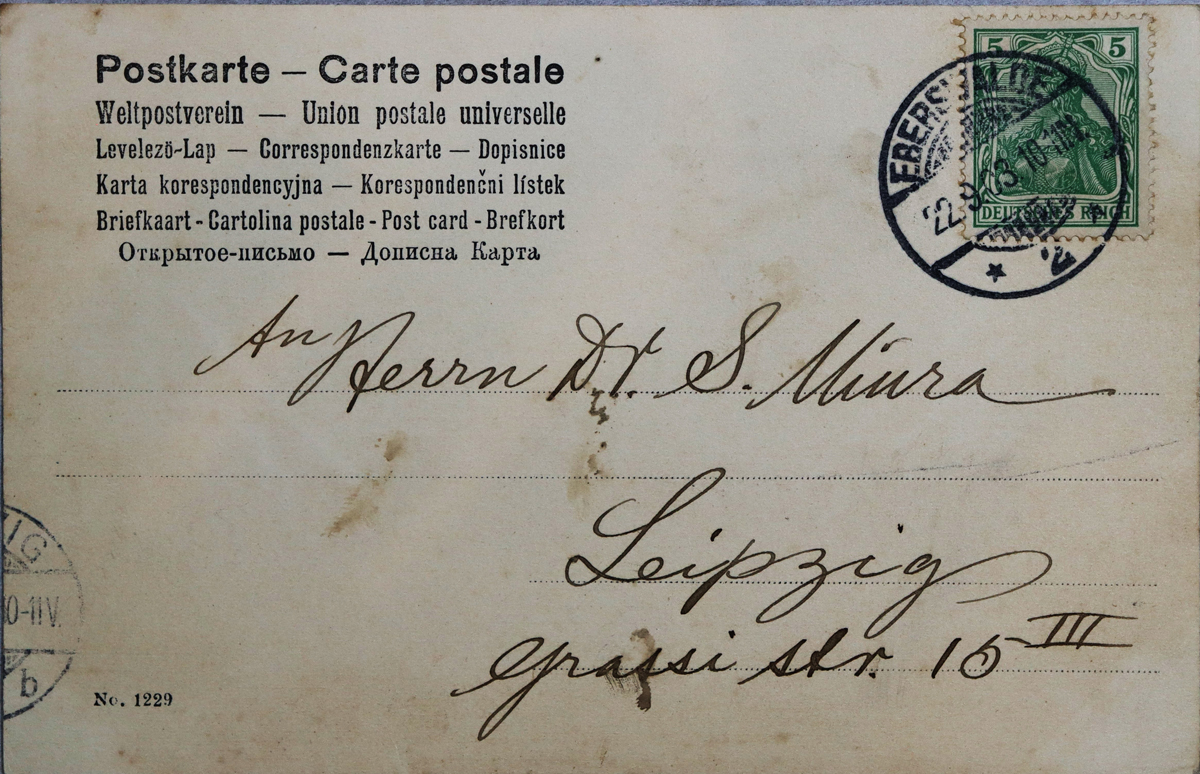 Postkarte – Carte postale
Weltpostverein — Union postale universelle
Levelező-Lap — Correspondenzkarte — Dopisnice
Karta korespondencyjna — Korespondenčni lístek
Briefkaart - Cartolina postale - Post card - Brefkort
Открытое-письмо — Дописна Карта
5 5
DEUTSCHES REICH
EBERSWALDE
22.9.03.
* 2 *
An Herrn Dr. S. Miura
Leipzig
Grassi str. 15 III
ZIG
10-11V.
b
No. 1229